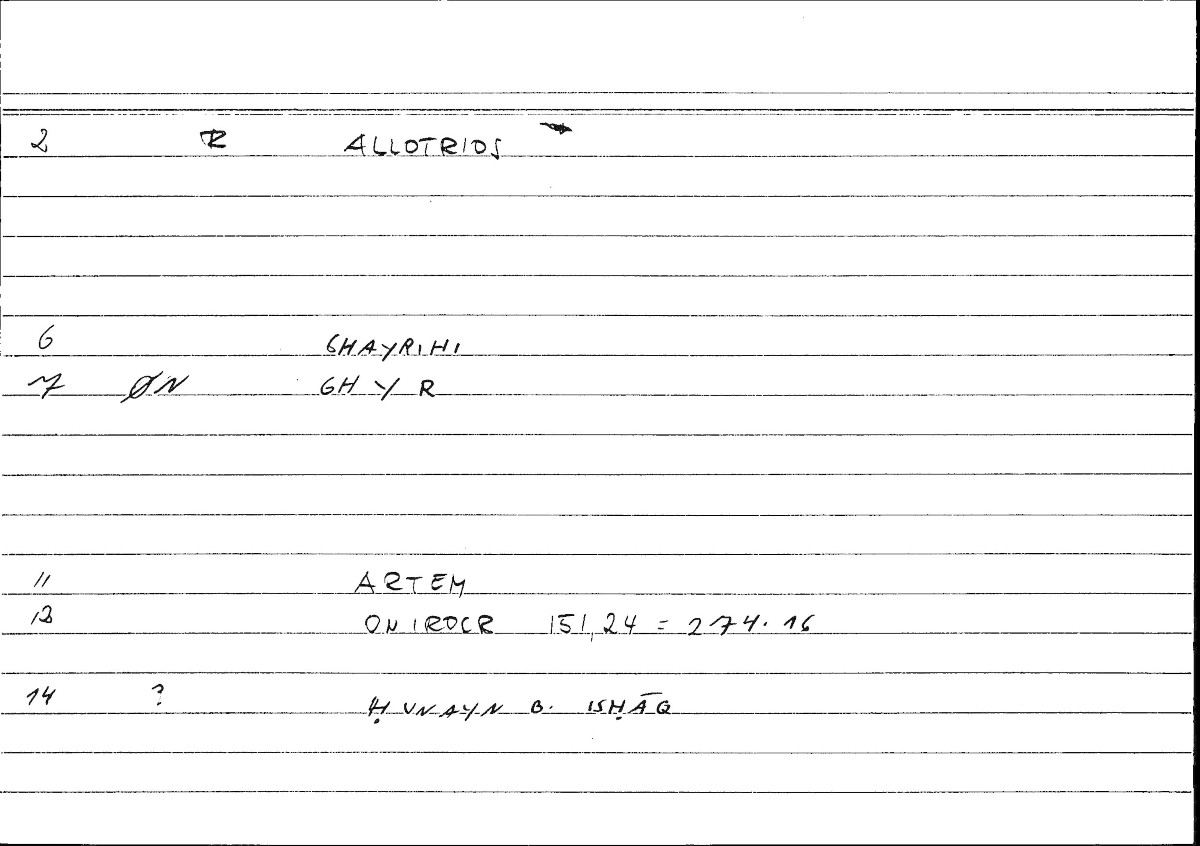 2 R ALLOTRIOS
6 GHAYRIHI
7 ØN GH Y R
11 ARTEM
12 ONIROCR 151,24 = 274.16
14 ? ḤUNAYN B. ISḤĀQ